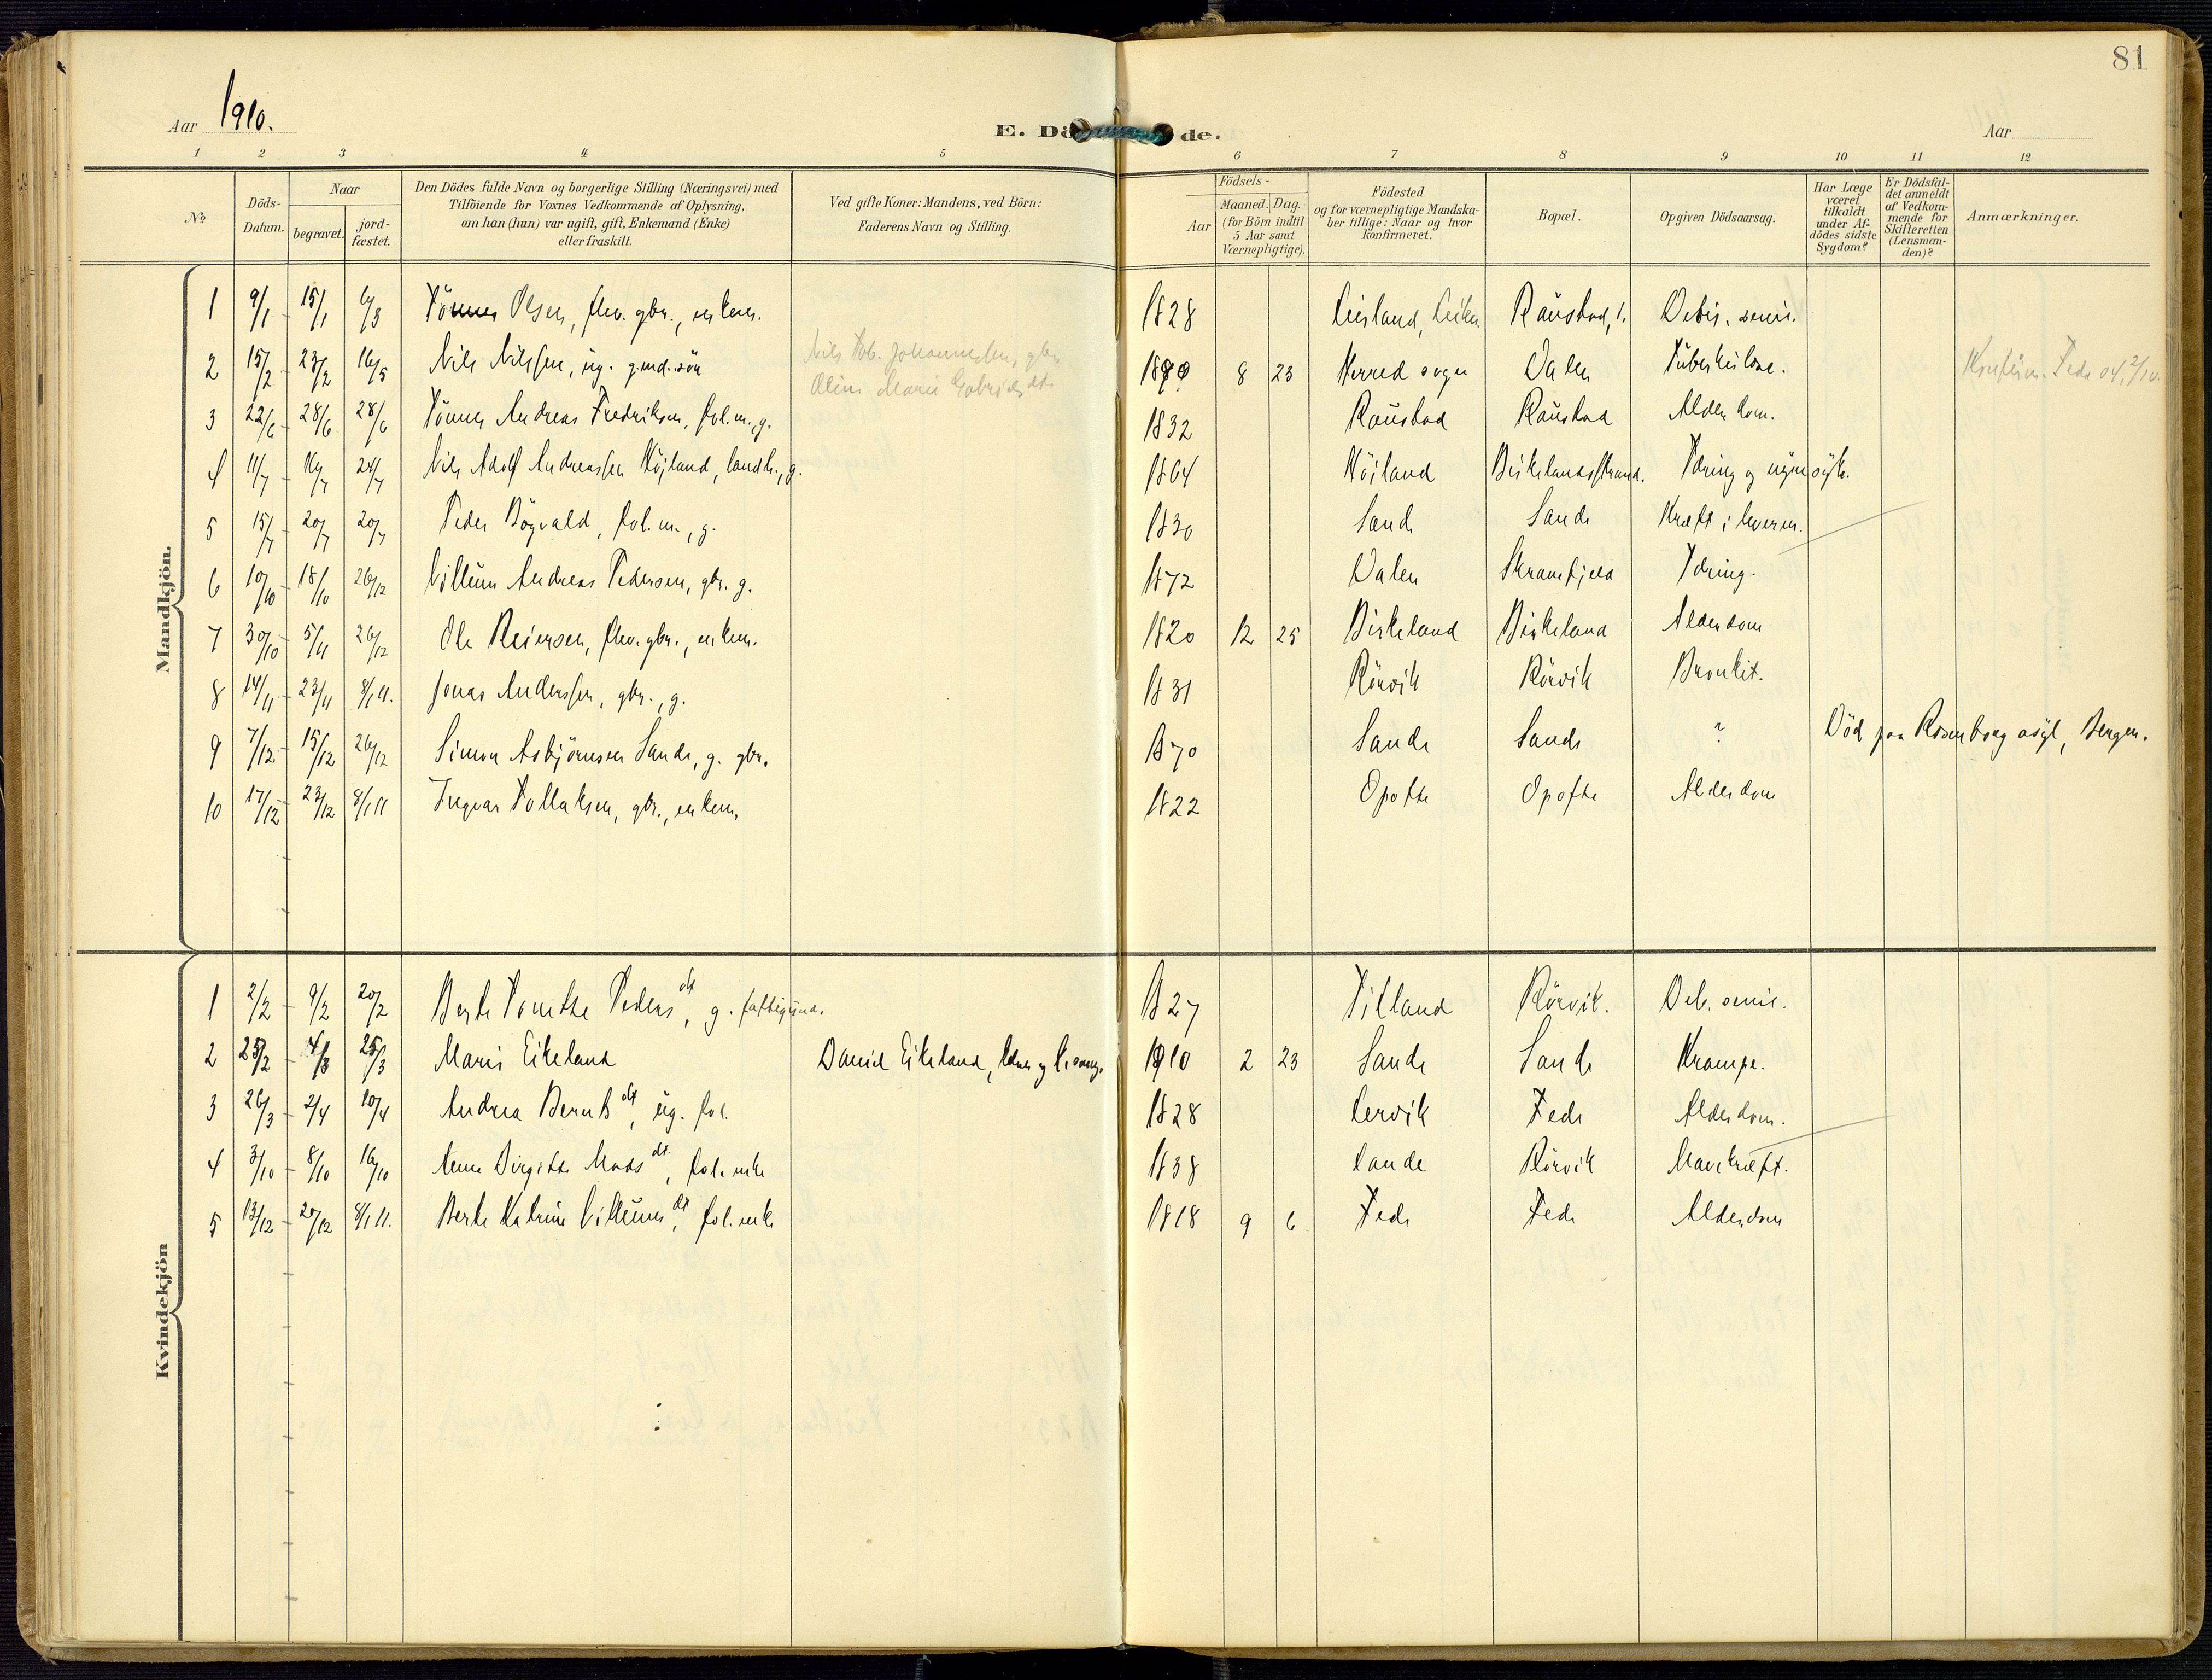 81
Aar 1910.
E. Dö de.
Aar
1 2 3 4 5 6 7 8 9 10 11 12
No
Döds-
Datum.
Naar
begravet.
jord-
fæstet.
Den Dödes fulde Navn og borgerlige Stilling (Næringsvei) med
Tilföiende for Voxnes Vedkommende af Oplysning,
om han (hun) var ugift, gift, Enkemand (Enke)
eller fraskilt.
Ved gifte Koner: Mandens, ved Börn:
Faderens Navn og Stilling.
Födsels-
Aar
Maaned. Dag.
(for Börn indtil
5 Aar samt
Værnepligtige).
Födested
og for værnepligtige Mandska-
ber tillige: Naar og hvor
konfirmeret.
Bopæl.
Opgiven Dödsaarsag.
Har Læge
været
tilkaldt
under Af-
dödes sidste
Sygdom?
Er Dödsfal-
det anmeldt
af Vedkom-
mende for
Skifteretten
(Lensman-
den)?
Anmærkninger.
Mandkjön.
1 9/1 - 15/1 6/3 Tönnes Olsen, gbr., enkem. 1828 Raustad, Debil. senil.
2 15/2 - 23/2 16/5 Nils Nilssen, ug. gmd.sön 8 23 Herred sogn Dalen Tuberkulose.
3 22/6 - 28/6 28/6 Tönnes Andreas Fredriksen, fol.m., g. 1832 Raustad Raustad Alderdom.
4 11/7 24/7 Nils Adolf Andreassen Höiland, landh., g. 1864 Höiland Birkelandsstrand. Tæring og
5 15/7 - 20/7 20/7 Peder Bögvald, fol.m., g. 1830 Sande Sande Kræft i leveren.
6 10/10 - 18/10 26/12 Villum Andreas Pedersen, gbr. g. 1872 Dalen Skranefjeld Tæring.
7 30/10 - 5/11 26/12 Ole Reiersen, gbr., enkem. 1820 12 25 Birkeland Birkeland Alderdom
8 14/11 - 23/11 8/1 11. Jonas Anderssen, gbr., g. 1831 Rörvik Rörvik Bronkit.
9 7/12 - 15/12 26/12 Simon Asbjörnsen Sande, g. gbr. 1870 Sande Sande ? Död paa Rosenberg asyl, Bergen.
10 17/12 - 23/12 8/1 11 Ingvar Tollaksen, gbr., enkem. 1822 Opofte Opofte Alderdom
Kvindekjön
1 2/2 - 9/2 20/2 Berte Tomette Peders dt, g. 1827 Titland Rörvik. Deb. senil.
2 25/2 - 4/3 25/3 Marie Eikeland David Eikeland, 1910 2 23 Sande Sande Krampe.
3 26/3 - 2/4 10/4 Andrea Bernts dt, ug. fol. 1828 Lervik Fede Alderdom.
4 3/10 - 8/10 16/10 Anne Birgitte Mads dt, fol. enke 1838 Rörvik Mavekræft.
5 13/12 - 20/12 8/1 11. Berte Katrine Villums dt, fol. enke 1818 9 6 Fede Fede Alderdom